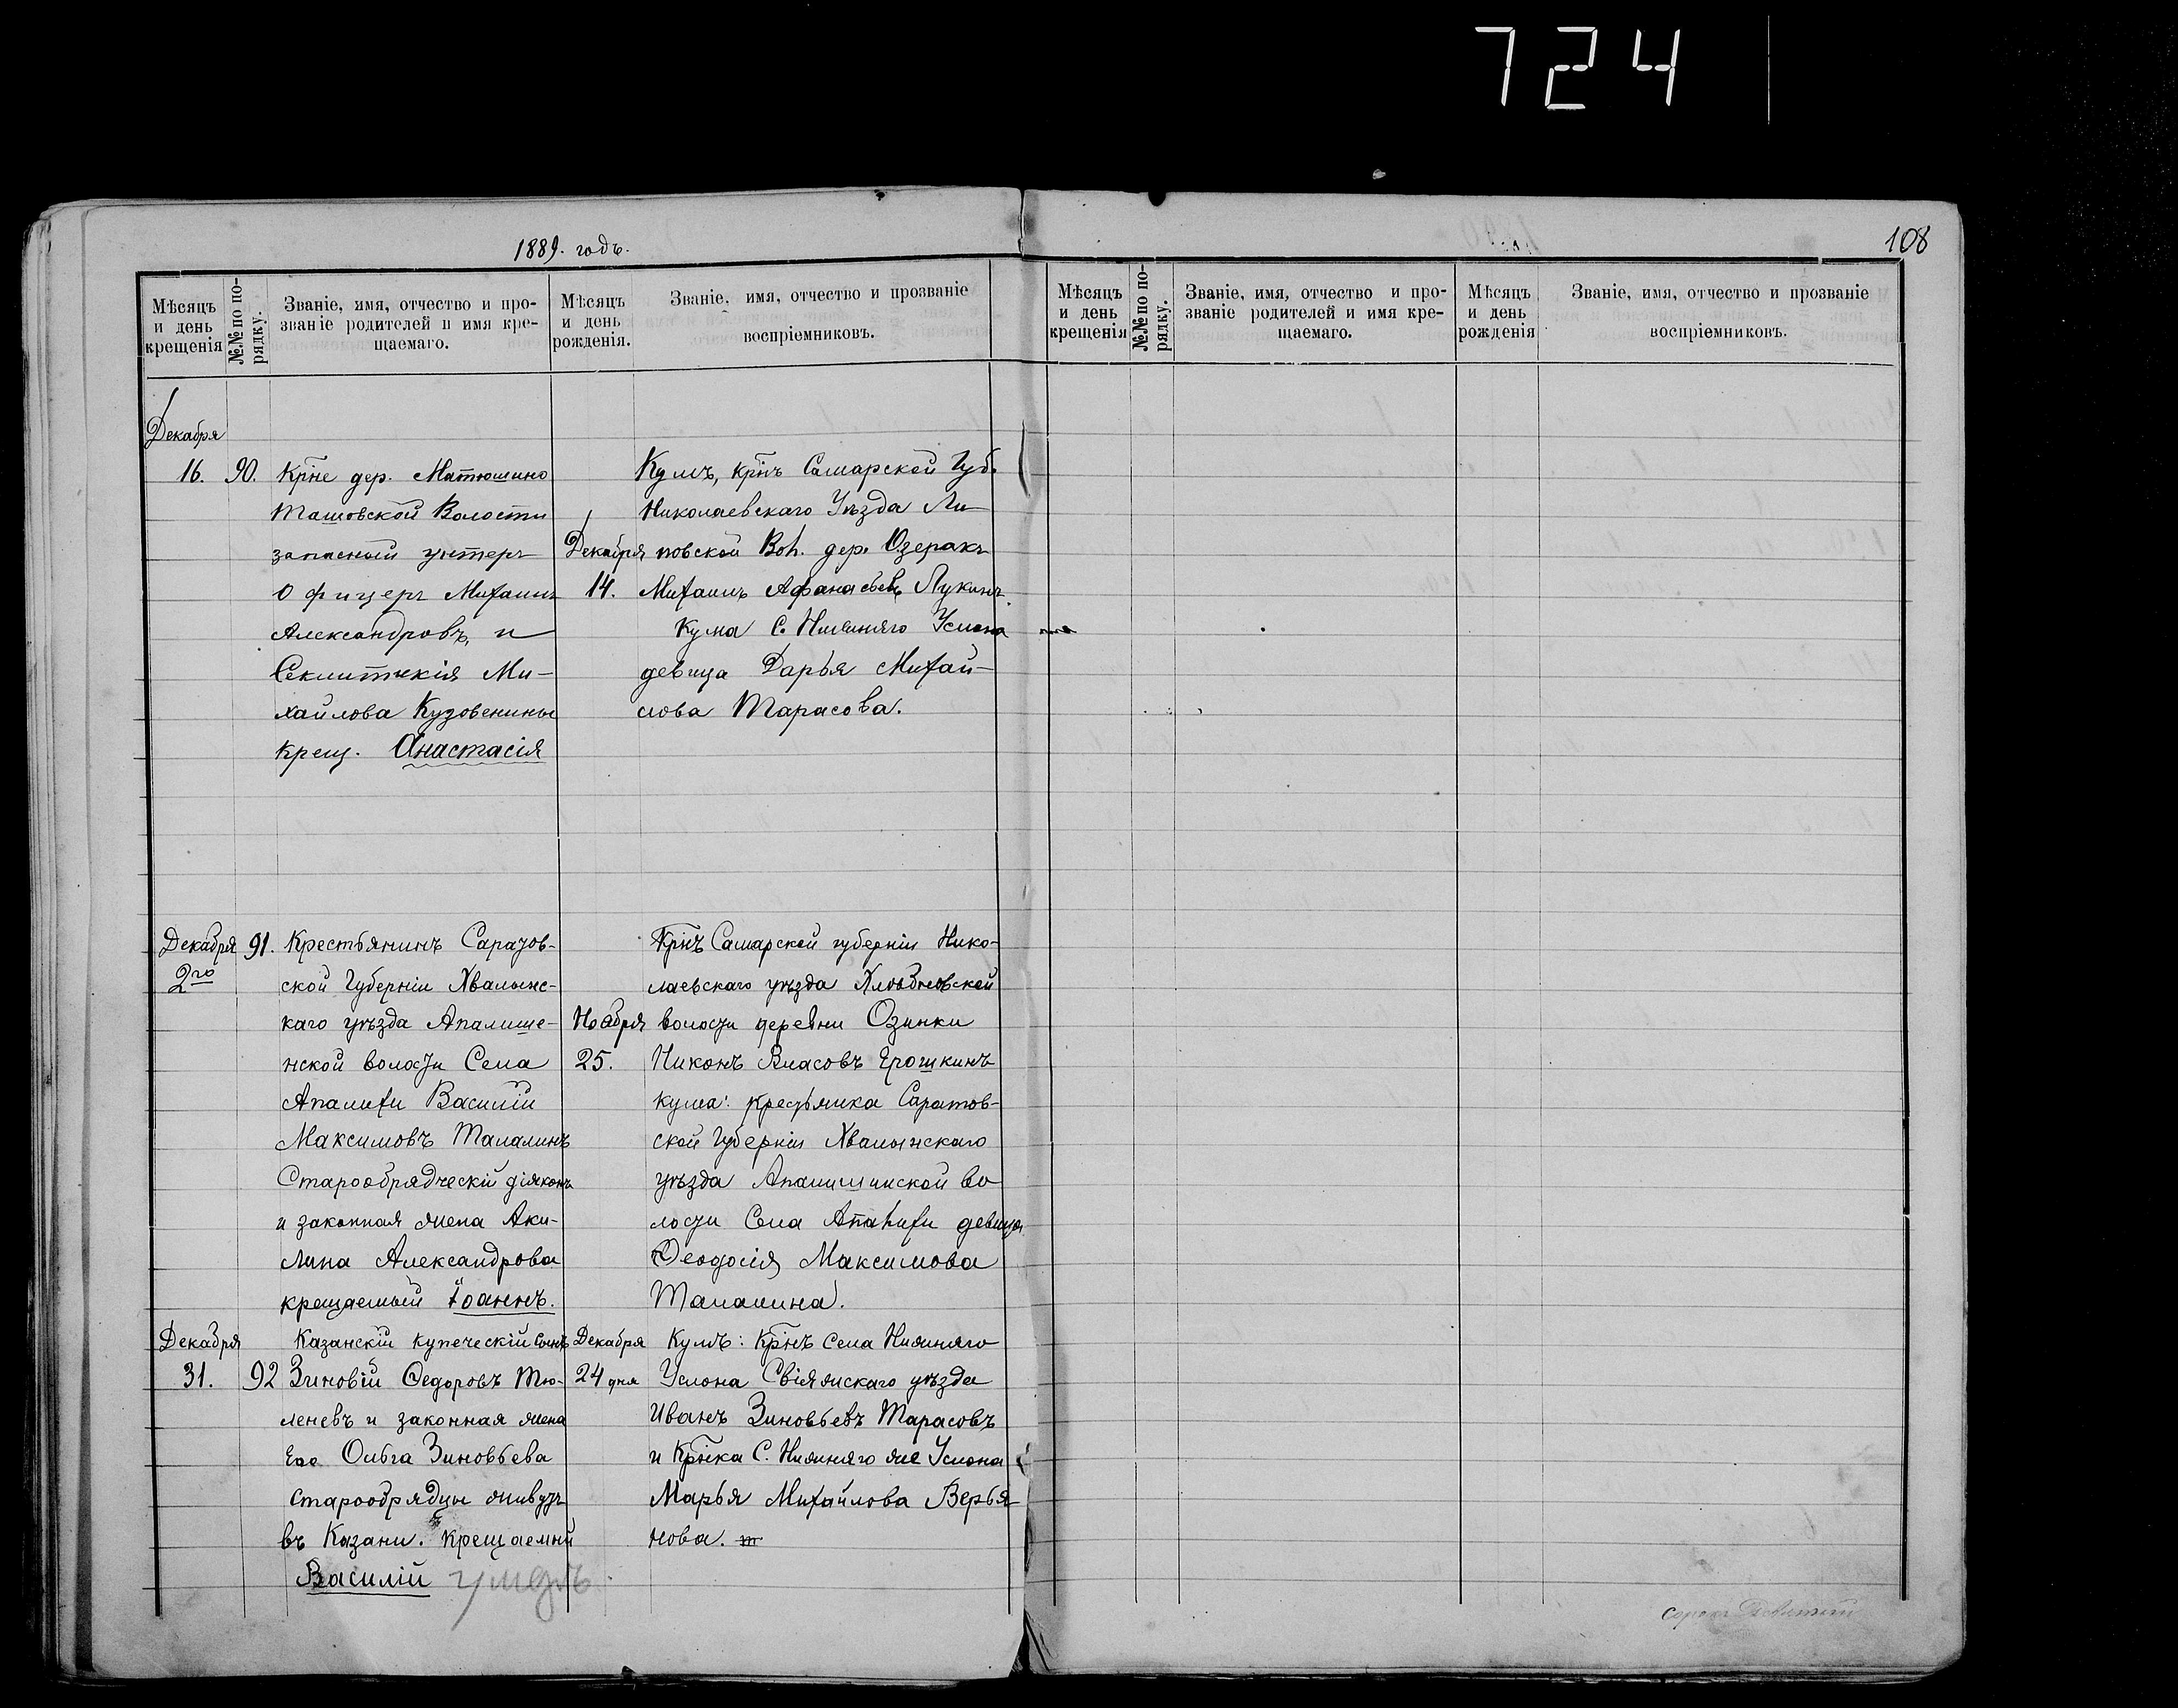 724
1889. годъ.
108
Мѣсяцъ и день крещенія
№№ по порядку.
Званіе, имя, отчество и прозваніе родителей и имя крещаемаго.
Мѣсяцъ и день рожденія.
Званіе, имя, отчество и прозваніе воспріемниковъ.
Мѣсяцъ и день крещенія
№№ по порядку.
Званіе, имя, отчество и прозваніе родителей и имя крещаемаго.
Мѣсяцъ и день рожденія
Званіе, имя, отчество и прозваніе воспріемниковъ.
Декабря
16. 90.
Крне дер. Матюшино
Ташовской Волости
запасный унтеръ
офицеръ Михаилъ
Александровъ, и
Секлитикія Ми-
хайлова Кузовенины
крещ. Анастасія
Декабря
14.
Кумъ, крнъ Самарской Губ.
Николаевскаго Уѣзда Ли-
повской Вол. дер. Озерокъ
Михаилъ Афанасьевъ Лукинъ.
Кума С. Нижняго Услона
девица Дарья Михай-
лова Тарасова.
Декабря 91.
2го
Крестьянинъ Саратов-
ской Губерніи Хвалынс-
каго уѣзда Апалише-
нской волости Села
Апалихи Василій
Максимовъ Талалинъ
Старообрядческій діяконъ
и законная жена Аки-
лина Александрова
крещаемый Іоаннъ.
Ноября
25.
Крнъ Самарской губерніи Нико-
лаевскаго уѣзда
волости деревни Озинки
Никонъ Власовъ Ерошкинъ
кума: крестьянка Саратов-
ской Губерніи Хвалынскаго
уѣзда Апалишинской во
лости Села Апалихи девица
Ѳеодосія Максимова
Талалина.
Декабря
31. 92
Казанскій купеческій сынъ
Зиновій Ѳедоровъ Тю-
леневъ и законная жена
Его Ольга Зиновьева
Старообрядцы живутъ
въ Казани. Крещаемый
Василій умеръ
Декабря
24 дня
Кумъ: Крнъ Села Нижняго
Услона Свіяжскаго уѣзда
Иванъ Зиновьевъ Тарасовъ
и Крнка С. Нижняго же Услона
Марья Михайлова Верья-
нова.